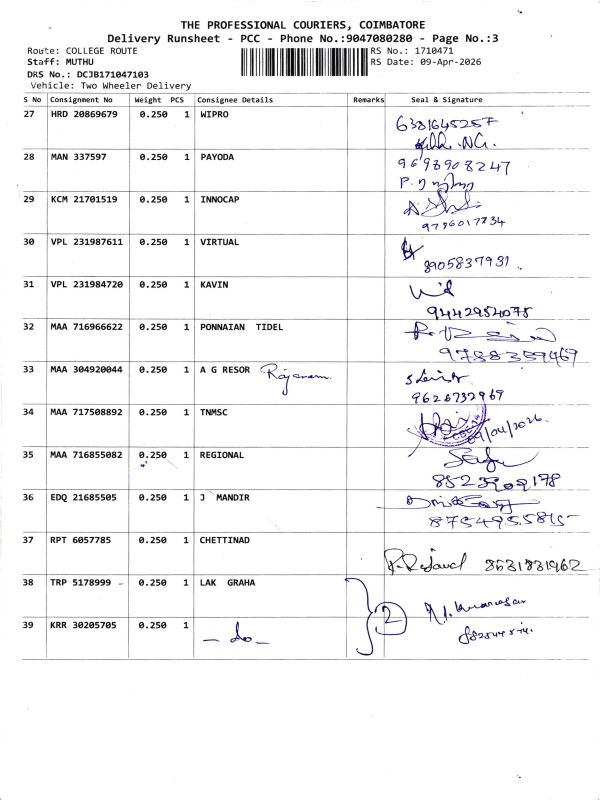 THE PROFESSIONAL COURIERS, COIMBATORE
Delivery Runsheet - PCC - Phone No.:9047080280 - Page No.:3
Route: COLLEGE ROUTE RS No.: 1710471
Staff: MUTHU RS Date: 09-Apr-2026
DRS No.: DCJB171047103
Vehicle: Two Wheeler Delivery
S No Consignment No Weight PCS Consignee Details Remarks Seal & Signature
27 HRD 20869679 0.250 1 WIPRO 6381645257
28 MAN 337597 0.250 1 PAYODA 9698908247
29 KCM 21701519 0.250 1 INNOCAP
9796017734
30 VPL 231987611 0.250 1 VIRTUAL
8905837931.
31 VPL 231984720 0.250 1 KAVIN
9442954075
32 MAA 716966622 0.250 1 PONNAIAN TIDEL
9788359469
33 MAA 304920044 0.250 1 A G RESOR Rajaram
9626732969
34 MAA 717508892 0.250 1 TNMSC
09/04/2026.
35 MAA 716855082 0.250 1 REGIONAL
8523909178
36 EDQ 21685505 0.250 1 J MANDIR
8754955815
37 RPT 6057785 0.250 1 CHETTINAD
8531831962
38 TRP 5178999 0.250 1 LAK GRAHA
2
39 KRR 30205705 0.250 1 - do -